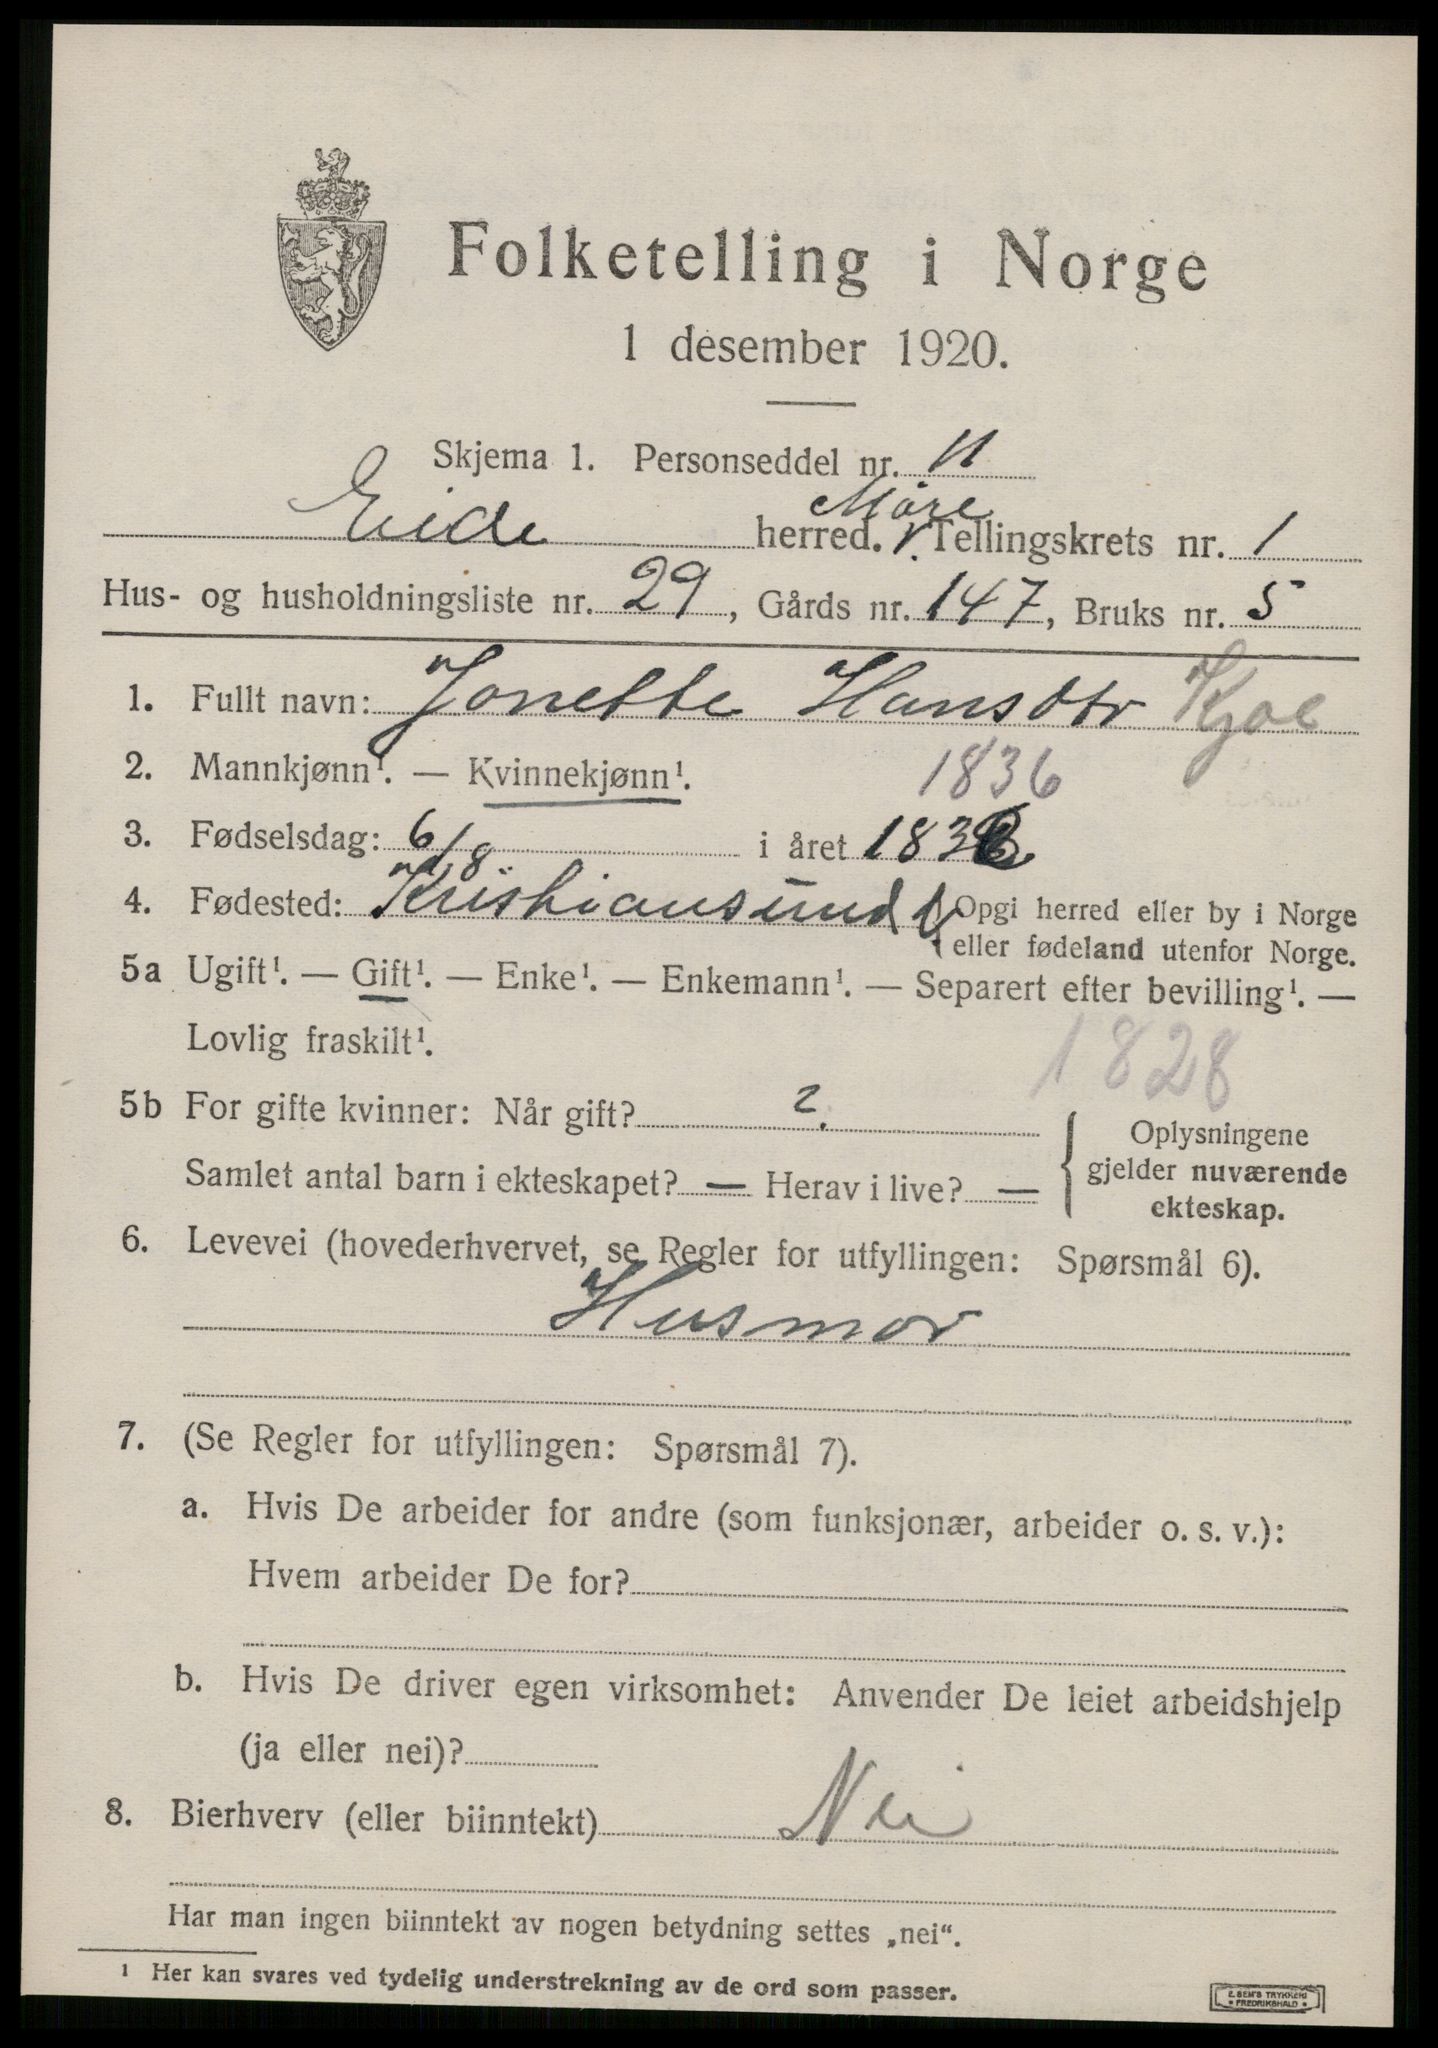 Folketelling i Norge
1 desember 1920.
Skjema 1. Personseddel nr. 11
Møre
Eide herred. Tellingskrets nr. 1
Hus- og husholdningsliste nr. 29, Gårds nr. 147, Bruks nr. 5
1. Fullt navn: Jonette Hansdtr
2. Mannkjønn¹. — Kvinnekjønn¹. 1836
3. Fødselsdag: 6/8 i året
4. Fødested: Kristiansund { Opgi herred eller by i Norge
eller fødeland utenfor Norge.
5a Ugift¹. — Gift¹. — Enke¹. — Enkemann¹. — Separert efter bevilling¹. —
Lovlig fraskilt¹. 1828
5b For gifte kvinner: Når gift? ?
Samlet antal barn i ekteskapet? — Herav i live? —
{ Oplysningene
gjelder nuværende
ekteskap.
6. Levevei (hovederhvervet, se Regler for utfyllingen: Spørsmål 6).
Husmor
7. (Se Regler for utfyllingen: Spørsmål 7).
a. Hvis De arbeider for andre (som funksjonær, arbeider o. s. v.):
Hvem arbeider De for?
b. Hvis De driver egen virksomhet: Anvender De leiet arbeidshjelp
(ja eller nei)?
8. Bierhverv (eller biinntekt) Nei
Har man ingen biinntekt av nogen betydning settes „nei“.
¹ Her kan svares ved tydelig understrekning av de ord som passer.
E. SEM'S TRYKKERI
• FREDRIKSHALD •